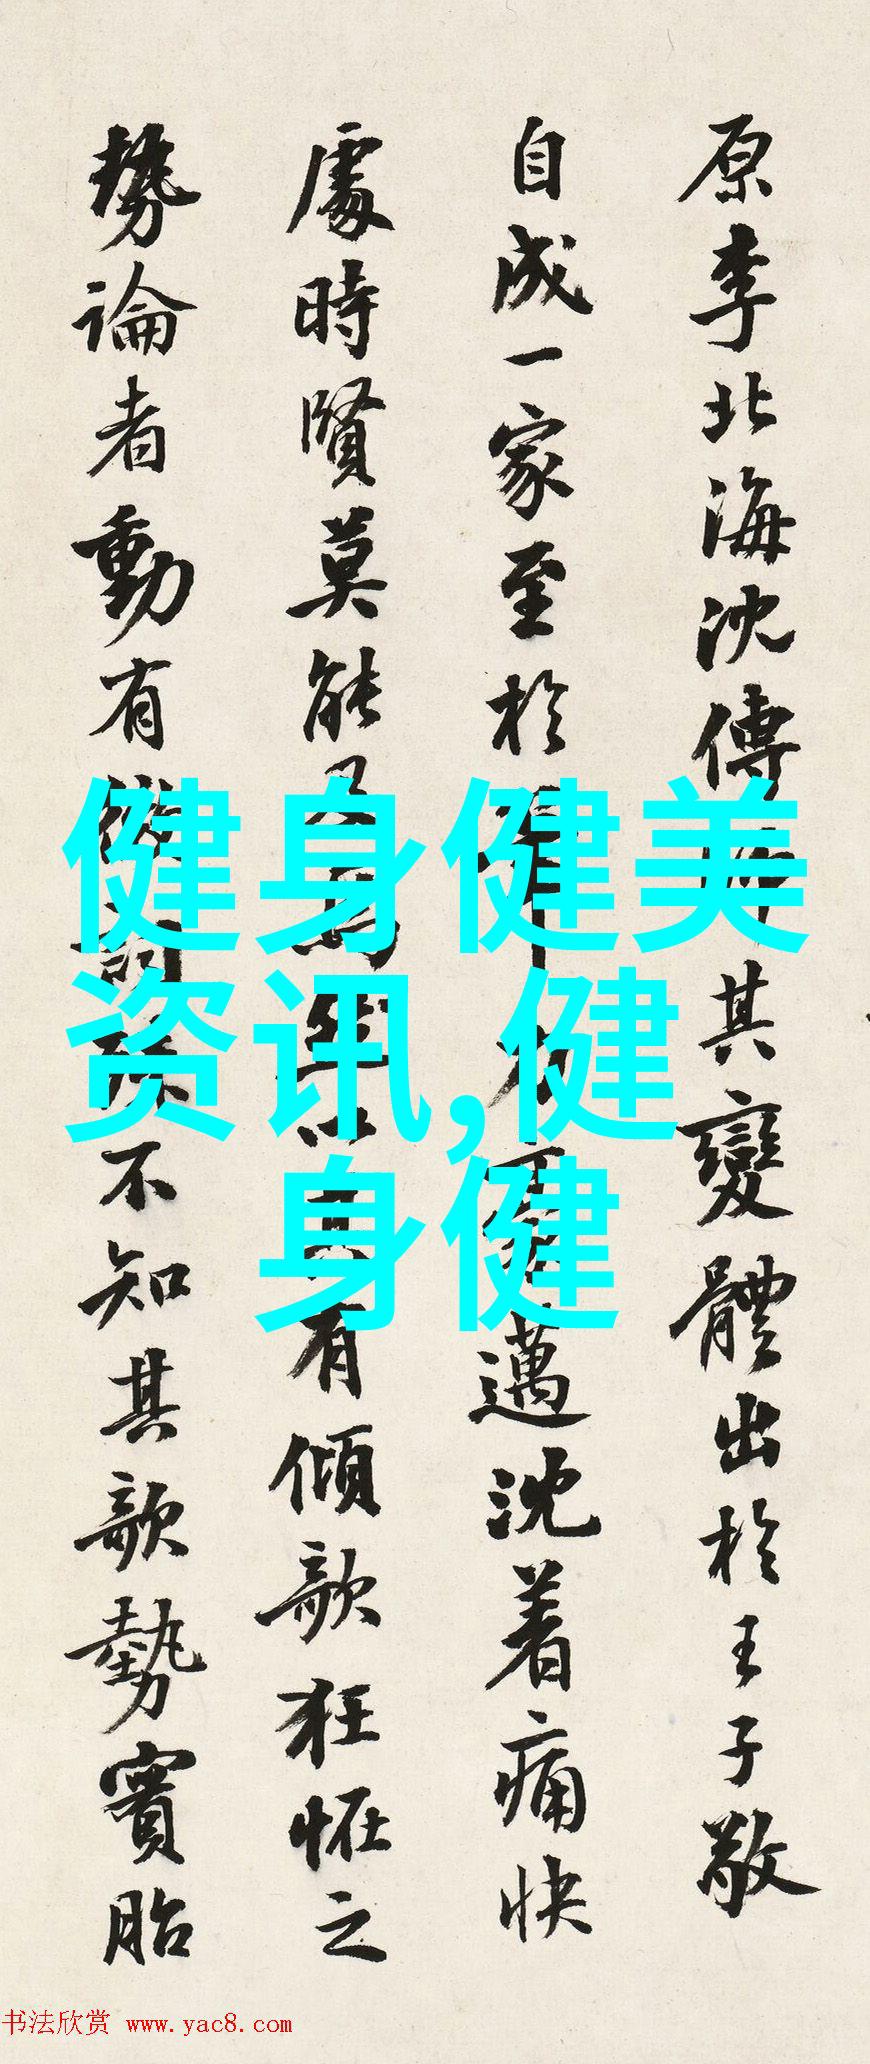 原李北海沈傳其變體出於王子敬
自成一家至於邁沈着痛快
處時賢莫能有傾欹狂怪之
勢論者動有不知其欹勢實胎
健身健美
资讯,健
身健
书法欣赏 www.yac8.com